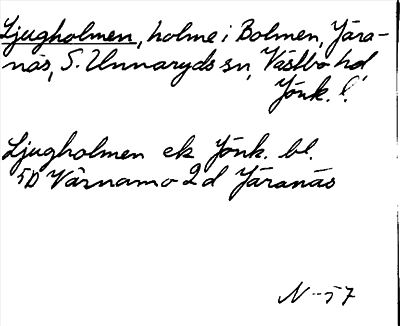 Ljugholmen, holme i Bolmen, Jära-
näs, S. Unnaryds sn, Västbo hd
Jönk. l.
Ljugholmen ek Jönk. bl.
5D Värnamo 2d Järanäs
N-57